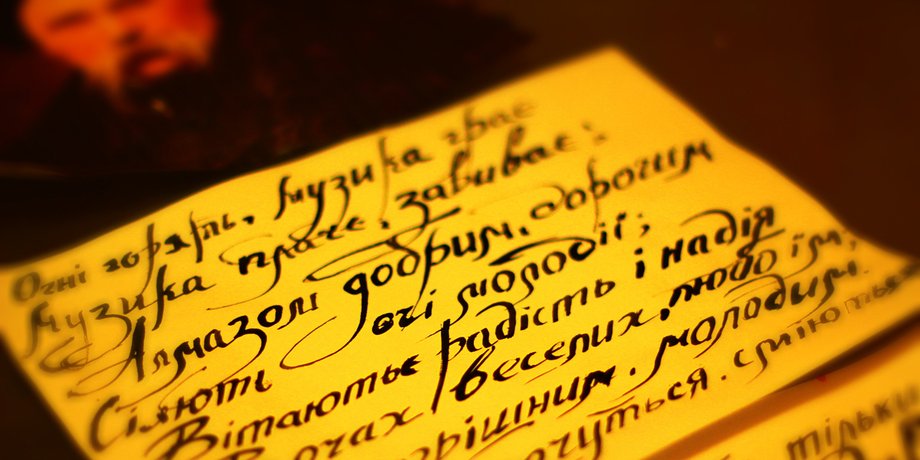 Огні горять, музика грає
Музика плаче, завиває;
Алмазом добрим, дорогим
Сіяють очі молодії;
Вітаються радість і надія
В очах веселих, любо їм,
молодим.
сміються
тільки